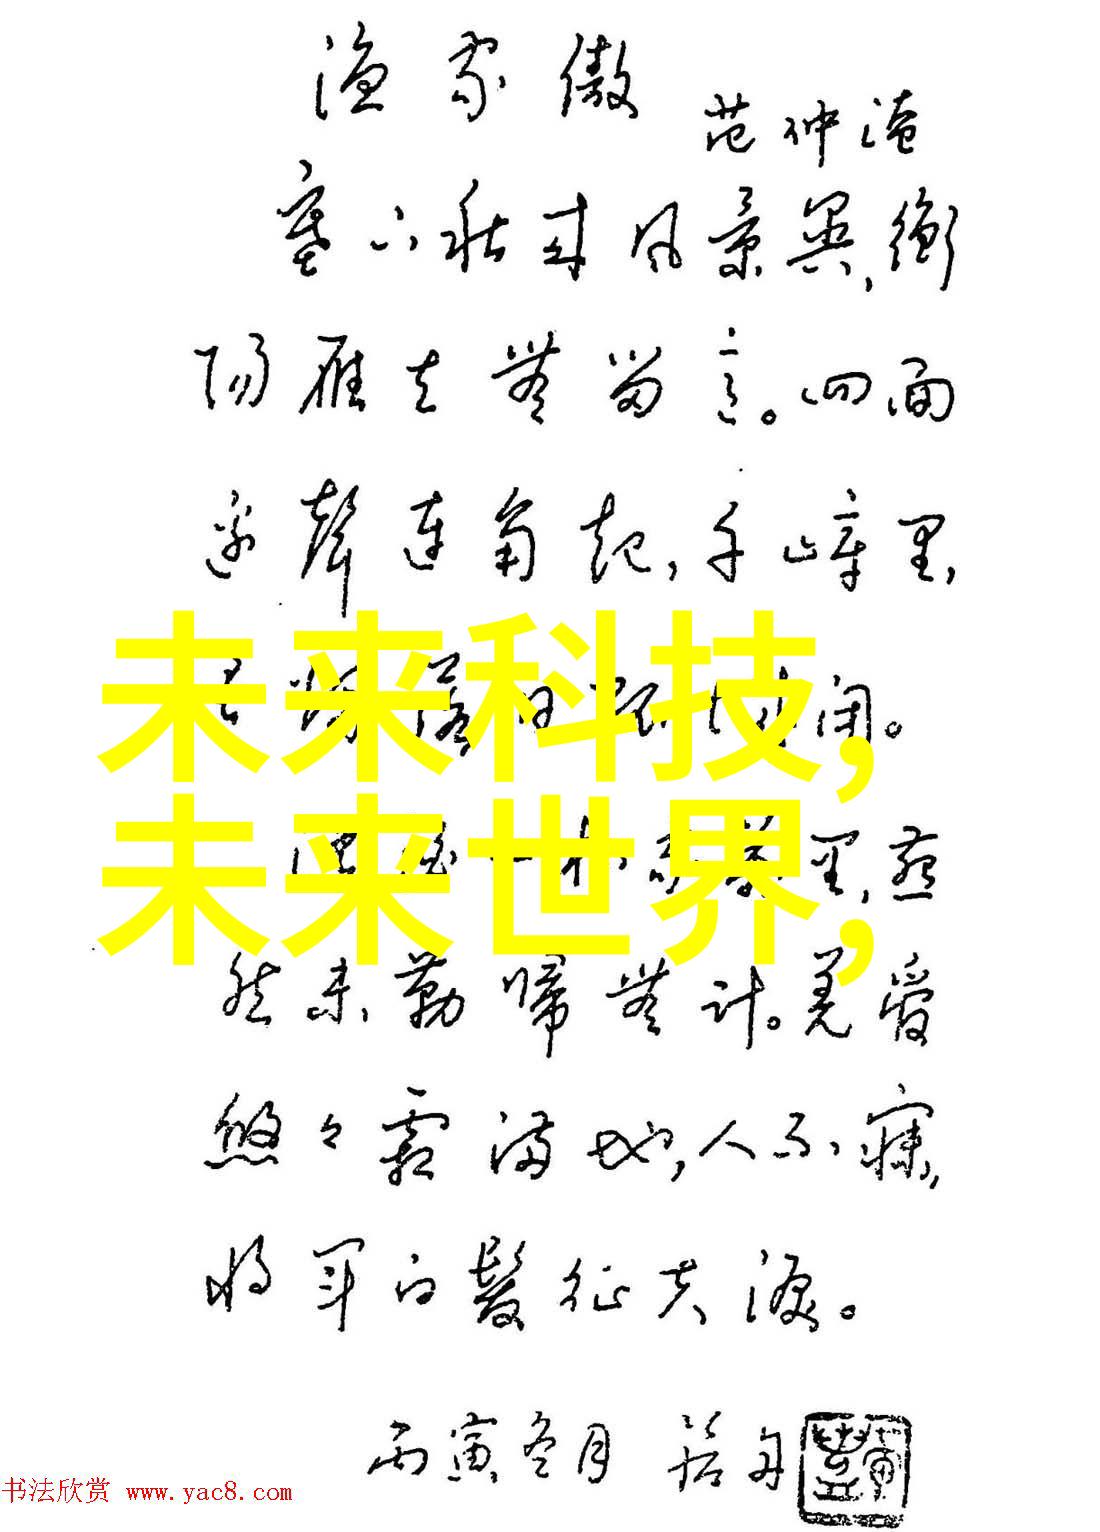 渔家傲
范仲淹
塞下秋来风景异,衡
阳雁去無留意。四面
边聲连角起,千嶂里,
未来科技,
烟落日孤城闭。
未来世界,
酒一杯家万里,燕
然未勒归無计。羌管
悠々霜满地,人不寐,
将军白髮征夫淚。
丙寅冬月
书法欣赏 www.yac8.com